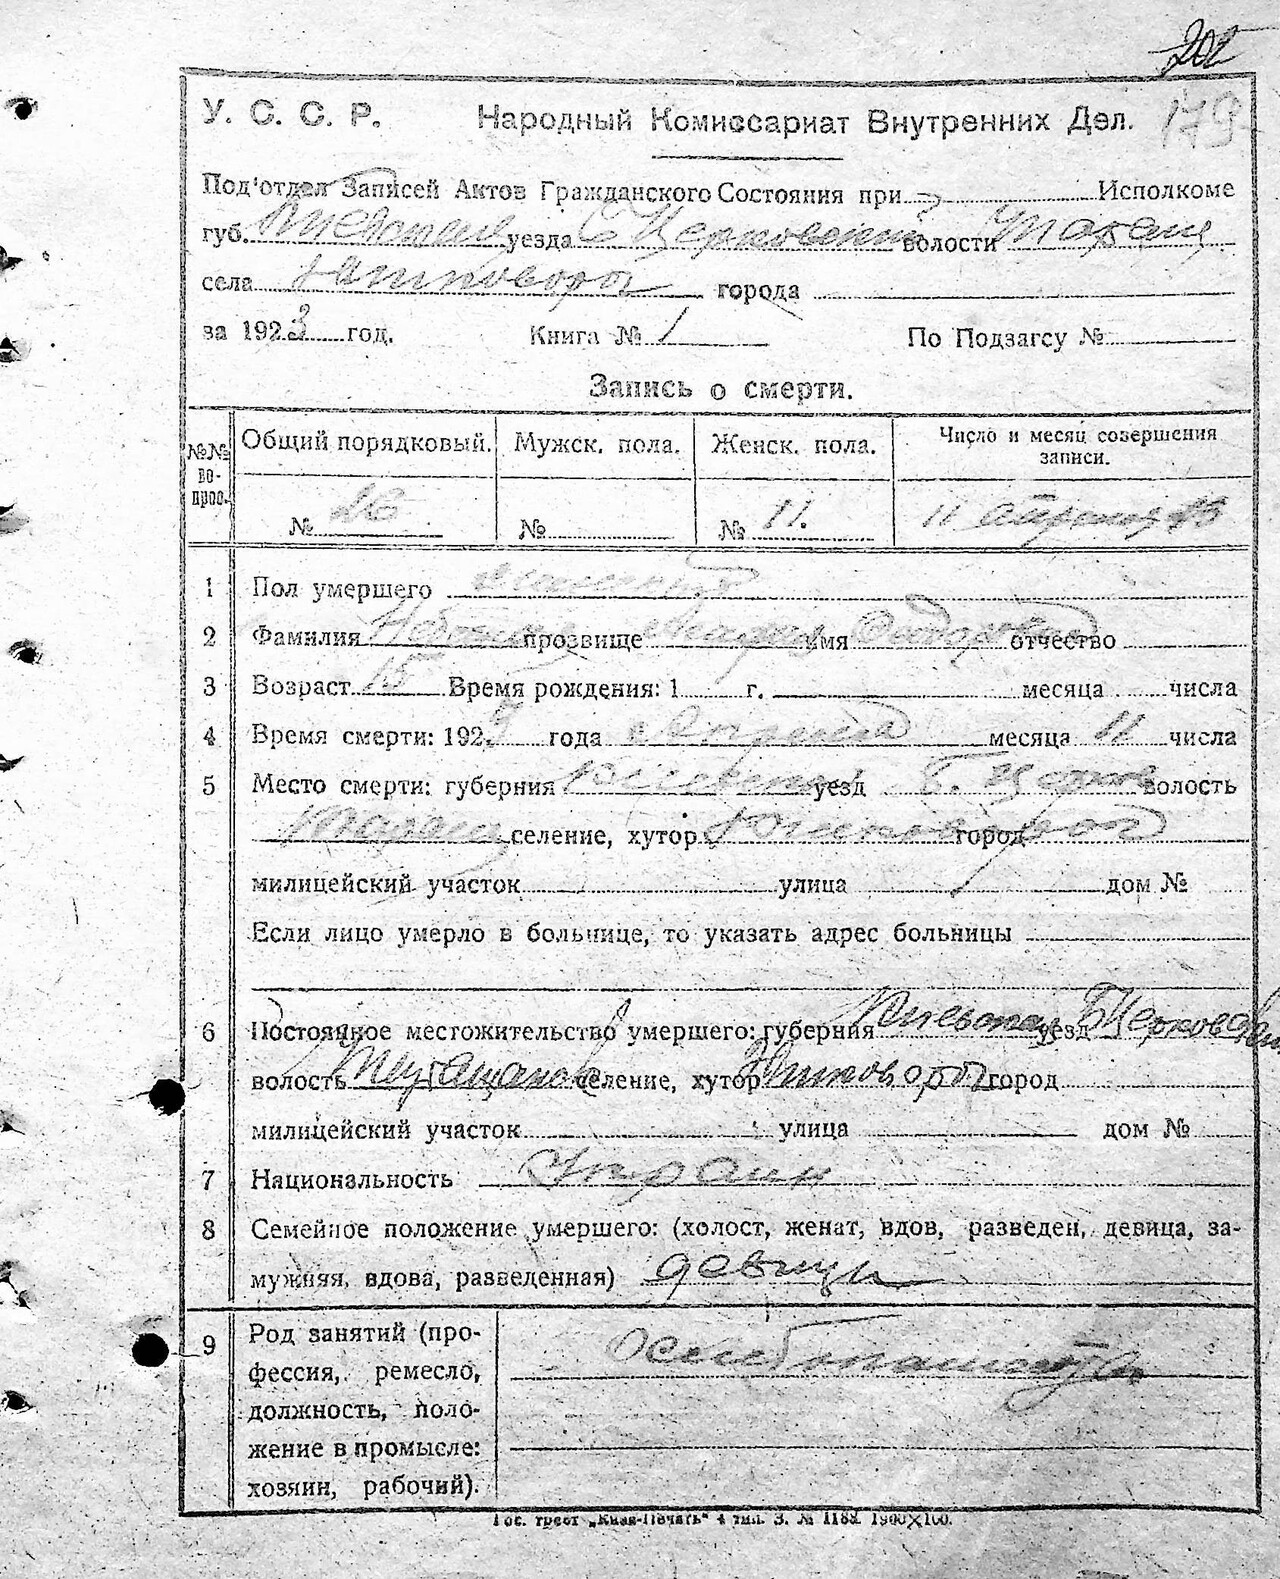 202
У. С. С. Р. Народный Комиссариат Внутренних Дел. 179
Под'отдел Записей Актов Гражданского Состояния при Исполкоме
губ. уезда Б Церковский волости
села города
за 1923 год. Книга № 1 По Подзагсу №
Запись о смерти.
№№ во- прос. Общий порядковый. Мужск. пола. Женск. пола. Число и месяц совершения записи.
№ 26 № № 11. 11 апреля 23
1 Пол умершего
2 Фамилия прозвище Мария имя Сидоровна отчество
3 Возраст 15 Время рождения: 1 г. месяца числа
4 Время смерти: 1923 года Апреля месяца 11 числа
5 Место смерти: губерния Киевская уезд Б. Церков волость
селение, хутор город
милицейский участок улица дом №
Если лицо умерло в больнице, то указать адрес больницы
6 Постоянное местожительство умершего: губерния Киевская уезд БЦерковский
волость селение, хутор город
милицейский участок улица дом №
7 Национальность Украин
8 Семейное положение умершего: (холост, женат, вдов, разведен, девица, за-
мужняя, вдова, разведенная) девица
9 Род занятий (про-
фессия, ремесло,
должность, поло-
жение в промысле:
хозяин, рабочий).
Гос. трест „Киев-Печать" 4 тип. З. № 1188. 1900×100.